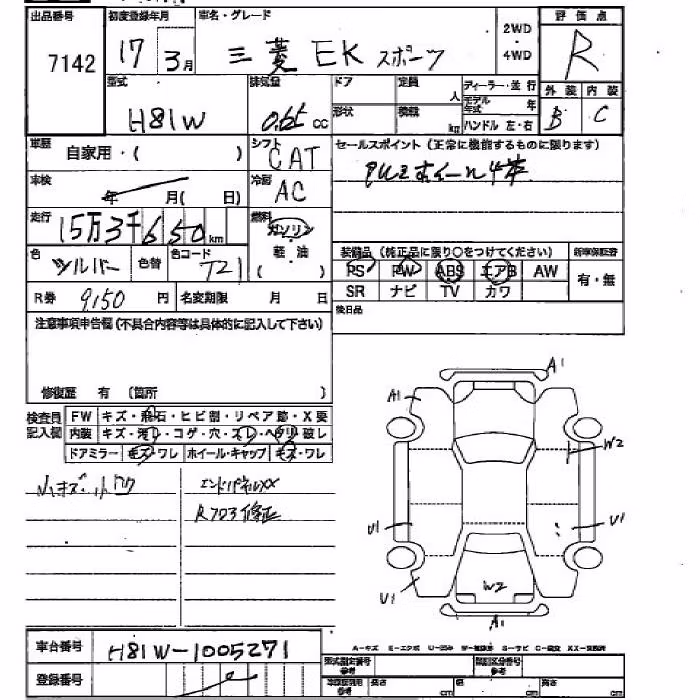 出品番号 初度登録年月 車名・グレード 2WD 評価点
7142 17 3月 三菱 EK スポーツ ・4WD R
型式 排気量 ドア 定員 人 ディーラー・並行 外装 内装
H81W 0.65 cc 形状 積載 kg モデル年式 年 B C
ハンドル 左・右
車歴 自家用・( ) シフト CAT セールスポイント(正常に機能するものに限ります)
車検 年 月( 日) 冷房 AC アルミホイール4本
走行 15万3千650km 燃料 ガソリン
軽・油
( )
色 シルバー 色替 色コード T21 装備品(純正品に限り○をつけてください) 新車保証書
PS PW ABS エアB AW 有・無
R券 9,150 円 名変期限 月 日 SR ナビ TV カワ
注意事項申告欄(不具合内容等は具体的に記入して下さい) 後日品
修復歴 有 〔箇所 〕
検査員記入欄 FW キズ・飛石・ヒビ割・リペア跡・X要
内装 キズ・汚レ・コゲ・穴・スレ・ヘタリ・破レ
ドアミラー キズ・ワレ ホイール・キャップ キズ・ワレ
小キズ・小凹 エンドパネルXX
R703修正
A1
A1
W2
U1 U1
W2
U1
A1
車台番号 H81W-1005271
A-キズ E-エクボ U-凹み W-補修跡 S-サビ C-腐食 XX-交換済
登録番号 型式指定番号 参考 類別区分番号 参考
長さ cm 幅 cm 高さ cm